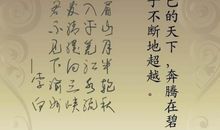 己的天下，奔腾在碧
于不断地超越。
眉山月半轮秋
入平羌江水流
发清溪向三峡
君不见下渝州
——李白